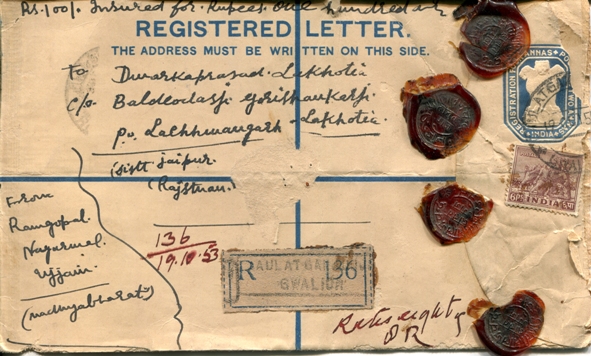 Rs. 100/- Insured for Rupees One hundred only
REGISTERED LETTER.
THE ADDRESS MUST BE WRITTEN ON THIS SIDE.
To Dwarkaprasad. Lakhotia
C/o Baldeodasji Gorishankarji.
P.O. Lachhmangarh - Lakhotia.
Distt Jaipur.
(Rajsthan.)
From
Ramgopal.
Nagarmal.
Ujjain.
(Madhyabharat)
136
19.10.53
R
36
GWALIOR
REGISTRATION
ANNAS
INDIA
6ps
INDIA